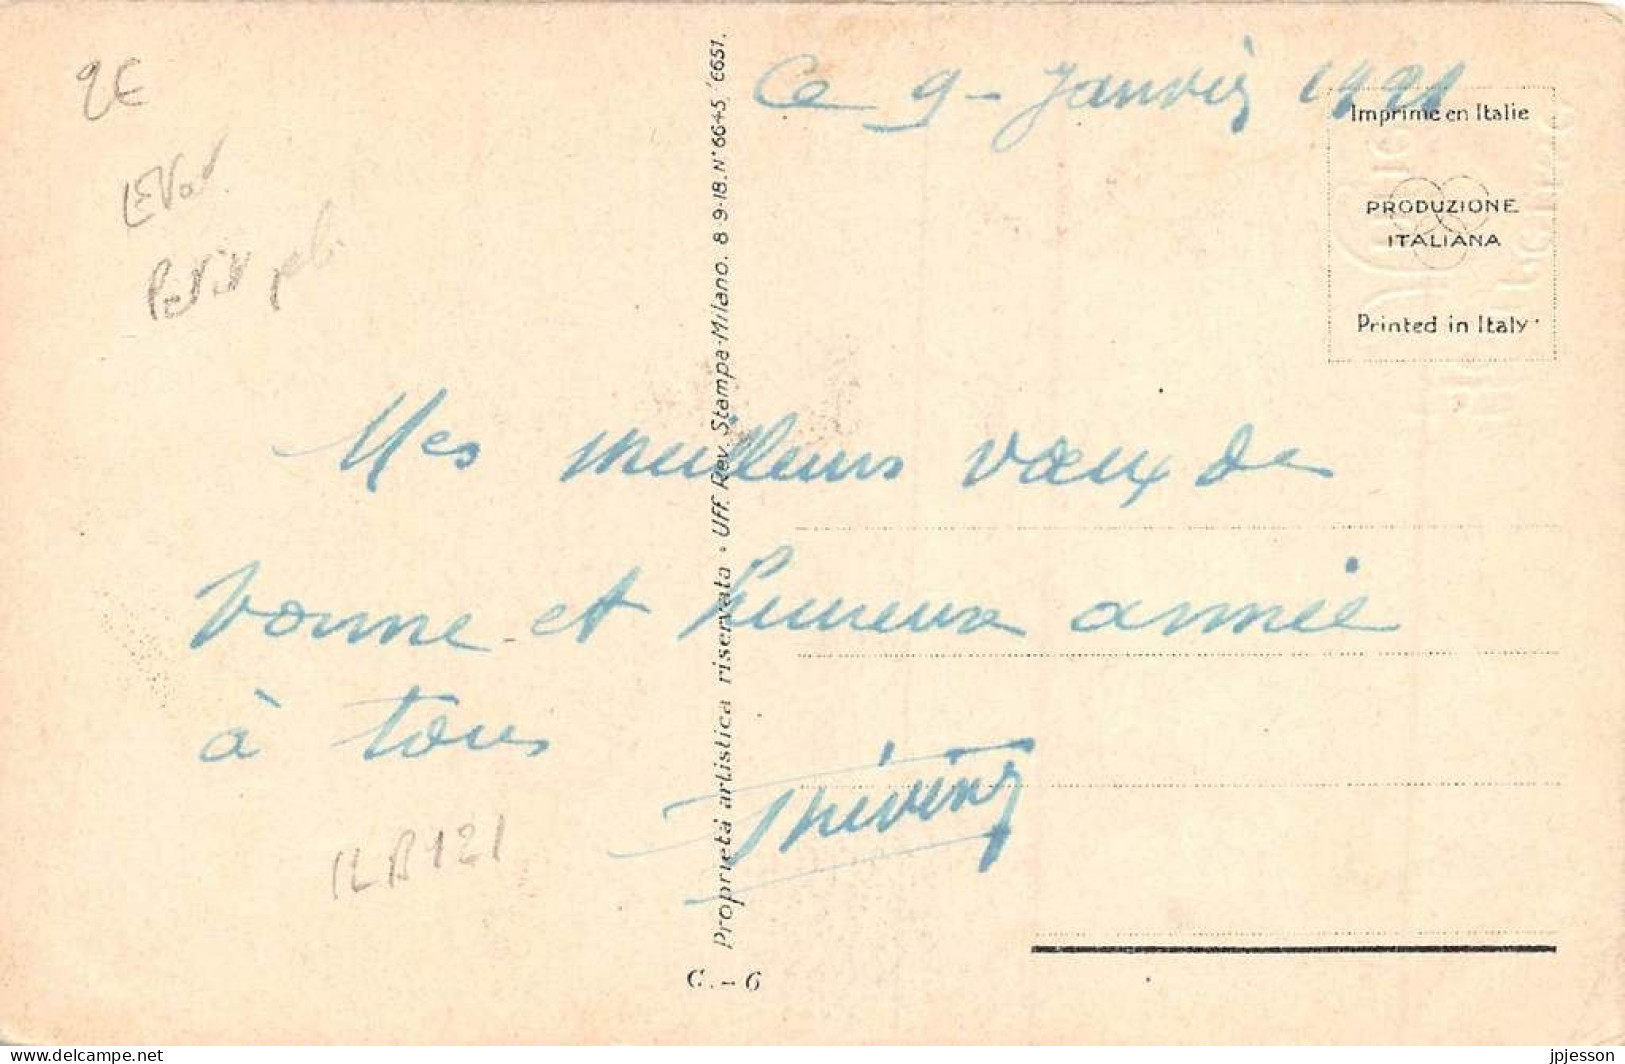 Ce 9 - Janvier 1921
Imprimé en Italie
PRODUZIONE
ITALIANA
Printed in Italy
Mes meilleurs vœux de
bonne et heureuse année
à tous
Proprietà artistica riservata • Uff. Rev. Stampa-Milano. 8 9-18. N° 6645/6651.
C. - 6
www.delcampe.net
jpjesson